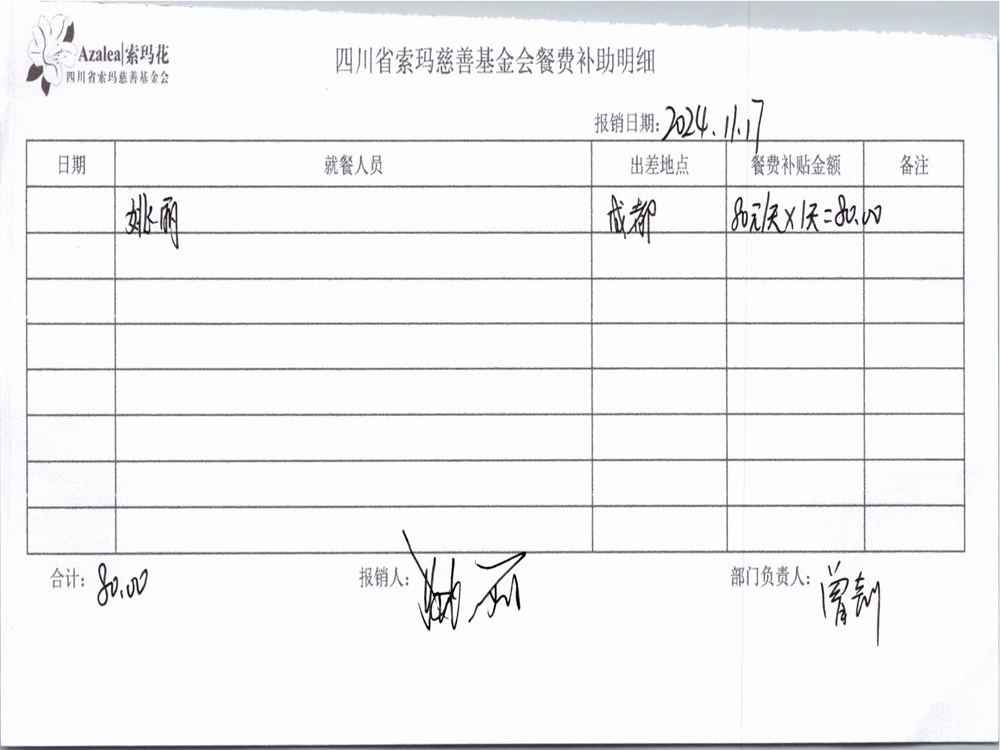 Azalea|索玛花
四川省索玛慈善基金会
四川省索玛慈善基金会餐费补助明细
报销日期：2024.11.17
日期 就餐人员 出差地点 餐费补贴金额 备注
姚丽 成都 80元/天×1天=80.00
合计：80.00 报销人：姚丽 部门负责人：曾